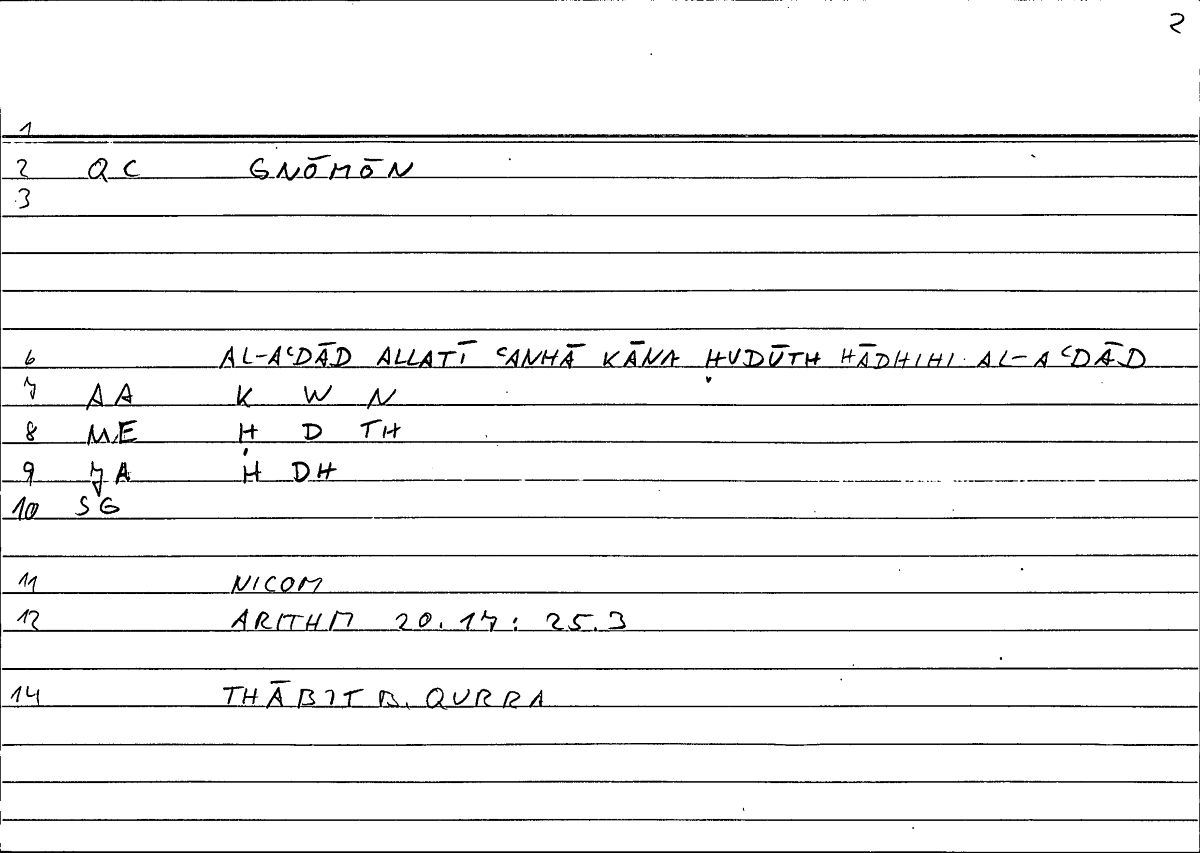 2
1
2 QC GNŌMŌN
3
6 AL-AʿDĀD ALLATĪ ʿANHĀ KĀNA ḤUDŪTH HĀDHIHI AL-AʿDĀD
7 AA K W N
8 ME Ḥ D TH
9 JA H DH
10 SG
11 NICOM
12 ARITHM 20.17: 25.3
14 THĀBIT B. QURRA